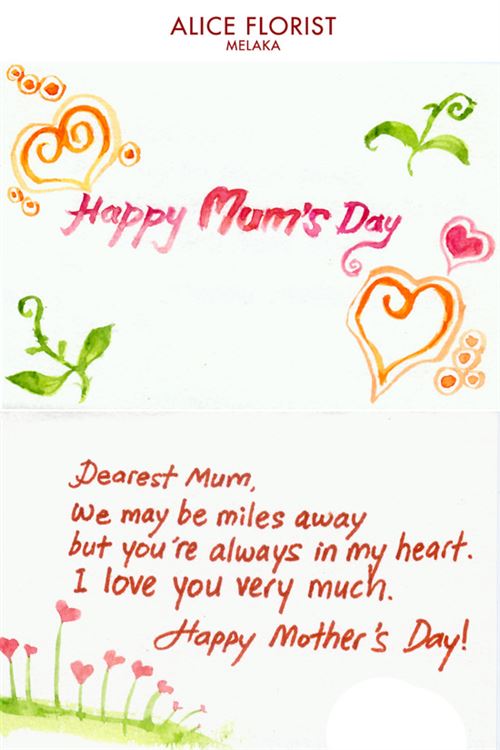 ALICE FLORIST
MELAKA
Happy Mum's Day
Dearest Mum,
We may be miles away
but you're always in my heart.
I love you very much.
Happy Mother's Day!